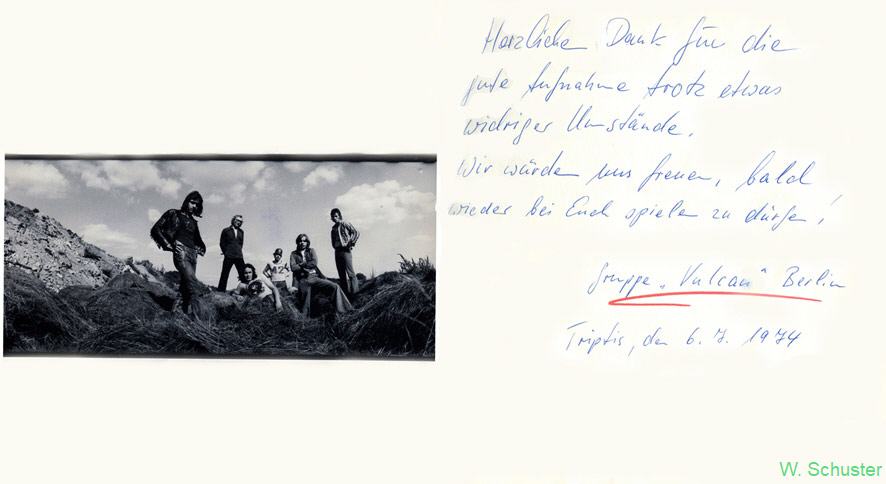 Herzlichen Dank für die
gute Aufnahme trotz etwas
widriger Umstände.
Wir würden uns freuen, bald
wieder bei Euch spielen zu dürfen!
Gruppe „Vulcan“ Berlin
Triptis, den 6. 7. 1974
W. Schuster